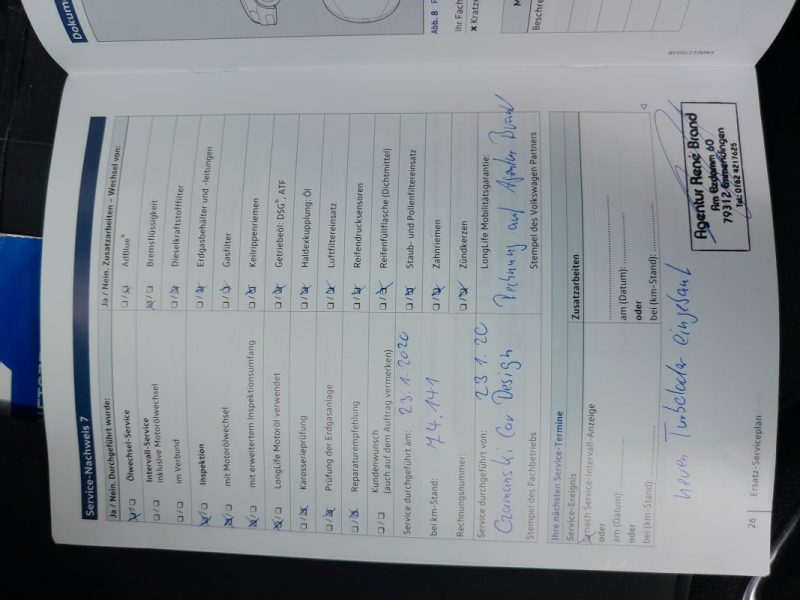 Dokum
Abb. 8
Ihr Fach
x Kratze
Beschre
Service-Nachweis 7
Ja / Nein. Durchgeführt wurde:
Ölwechsel-Service
Intervall-Service
inklusive Motorölwechsel
im Verbund
Inspektion
mit Motorölwechsel
mit erweitertem Inspektionsumfang
LongLife Motoröl verwendet
Karosserieprüfung
Prüfung der Erdgasanlage
Reparaturempfehlung
Kundenwunsch
(auch auf dem Auftrag vermerken)
Ja / Nein. Zusatzarbeiten – Wechsel von:
AdBlue®
Bremsflüssigkeit
Dieselkraftstofffilter
Erdgasbehälter und -leitungen
Gasfilter
Keilrippenriemen
Getriebeöl: DSG®, ATF
Haldexkupplung: Öl
Luftfiltereinsatz
Reifendrucksensoren
Reifenfüllflasche (Dichtmittel)
Staub- und Pollenfiltereinsatz
Zahnriemen
Zündkerzen
Service durchgeführt am: 23.1.2020
bei km-Stand: 74.141
Rechnungsnummer:
Service durchgeführt von: 23.1.20
Car Design
Stempel des Fachbetriebs
LongLife Mobilitätsgarantie:
Rechnung auf Agentur Brand
Stempel des Volkswagen Partners
Ihre nächsten Service-Termine
Service-Ereignis
nach Service-Intervall-Anzeige
oder
am (Datum):
oder
bei (km-Stand):
Zusatzarbeiten
am (Datum):
oder
bei (km-Stand):
neuen Turbolader eingebaut
Agentur René Brand
79312 Emmendingen
Tel: 0162 4217625
26 Ersatz-Serviceplan